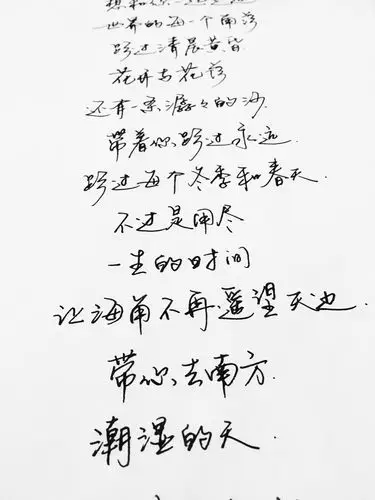 想和你一起去
世界的每一个角落
跨过清晨黄昏
花开与花落
还有一朵漂々的海
带着你跨过永远
跨过每个冬季和春天
不过是用尽
一生的时间
让海角不再遥望天边
带你去南方
潮湿的天